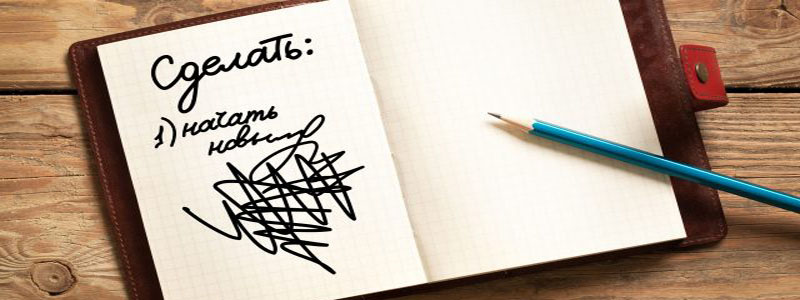 Сделать:
1) начать
новый